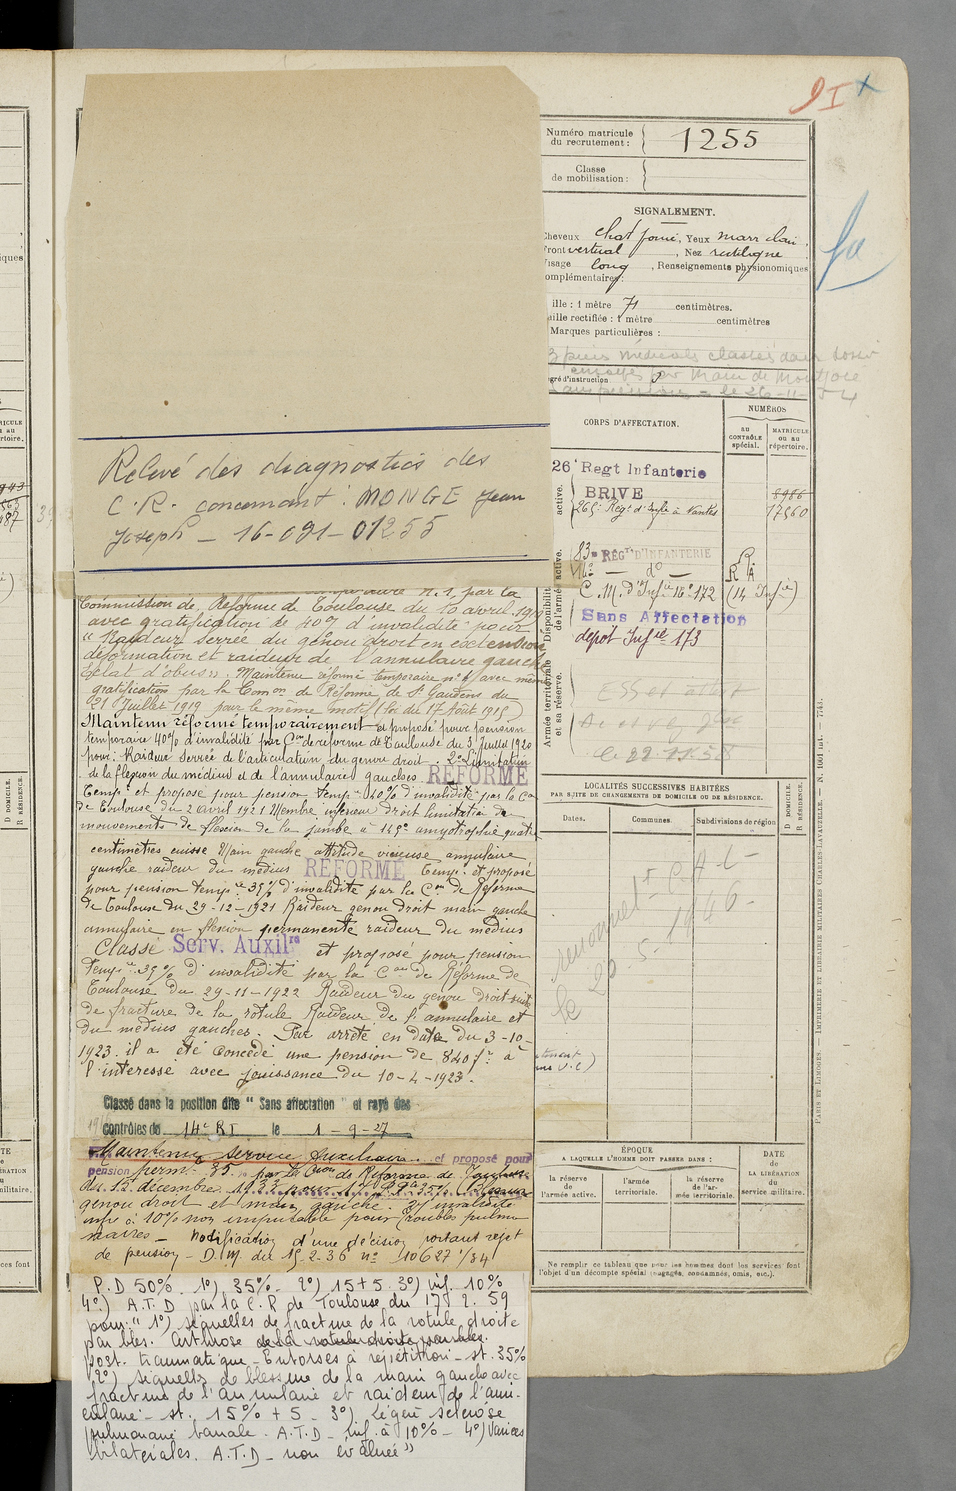 9 I x
Numéro matricule
du recrutement :
1255
Classe
de mobilisation :
SIGNALEMENT.
Cheveux chat foncé, Yeux marr clair,
Front vertical, Nez rectiligne
Visage long, Renseignements physionomiques
complémentaires :
ille : 1 mètre 71 centimètres.
aille rectifiée : 1 mètre centimètres
Marques particulières :
3 pièces médicales classées dans dossier
le 26-11-54
egré d'instruction 3
CORPS D'AFFECTATION.
NUMÉROS
AU
CONTRÔLE
spécial.
MATRICULE
OU AU
répertoire.
26e Regt Infanterie
BRIVE
8986
265e Régt d'Infie à Nantes
17560
83e RÉGt D'INFANTERIE
14e — do —
C. M. d'Infie 16e 172 (14 Infie)
Sans Affectation
dépôt Infie 173
Disponibilité
de l'armée active.
Armée territoriale
et sa réserve.
le 22.11.58
LOCALITÉS SUCCESSIVES HABITÉES
PAR SUITE DE CHANGEMENTS DE DOMICILE OU DE RÉSIDENCE.
Dates.
Communes.
Subdivisions de région
D DOMICILE.
R RÉSIDENCE.
le 20-5-1946-
ÉPOQUE
A LAQUELLE L'HOMME DOIT PASSER DANS :
la réserve
de
l'armée active.
l'armée
territoriale.
la réserve
de l'ar-
mée territoriale.
DATE
de
LA LIBÉRATION
du
service militaire.
Ne remplir ce tableau que pour les hommes dont les services font
l'objet d'un décompte spécial (engagés, condamnés, omis, etc.).
PARIS ET LIMOGES. — IMPRIMERIE ET LIBRAIRIE MILITAIRES CHARLES-LAVAUZELLE. — N. 1001 bis. — 7743.
Relevé des diagnostics des
C.R. concernant : MONGE Jean
Joseph — 16-091-01255
n. 1 par la
Commission de Réforme de Toulouse du 10 avril 1919
avec gratification de 40% d'invalidité pour
" Raideur serrée du genou droit en extension
déformation et raideur de l'annulaire gauche
Eclat d'obus". Maintenu réformé temporaire n° 1 avec même
gratification par la Comon de Réforme de St Gaudens du
21 Juillet 1919 pour le même motif (loi du 17 Août 1915)
Maintenu réformé temporairement et proposé pour pension
temporaire 40% d'invalidité par Con de réforme de Toulouse du 3 Juillet 1920
pour : Raideur serrée de l'articulation du genou droit. 2° Limitation
de la flexion du médius et de l'annulaire gauches RÉFORMÉ
Tempre et proposé pour pension tempre 40% d'invalidité par la Con
de Toulouse du 2 avril 1921 Membre inférieur droit limitation des
mouvements de flexion de la jambe à 145° amyotrophie quatre
centimètres cuisse Main gauche attitude vicieuse annulaire
gauche raideur du médius RÉFORMÉ Tempre et proposé
pour pension tempre 35% d'invalidité par la Con de Réforme
de Toulouse du 29-12-1921 Raideur genou droit main gauche
annulaire en flexion permanente raideur du médius
Classé Serv. Auxilre et proposé pour pension
tempre 35% d'invalidité par la Con de Réforme de
Toulouse du 29-11-1922 Raideur du genou droit suite
de fracture de la rotule Raideur de l'annulaire et
du médius gauches. Par arrêté en date du 3-10-
1923 il a été concédé une pension de 840 fr à
l'intéressé avec jouissance du 10-4-1923.
Classé dans la position dite "Sans affectation" et rayé des
contrôles du 14e RI le 1-9-27
Maintenu service Auxiliaire et proposé pour
pension perm. 35% par la Con de Réforme de Toulouse
du 12 décembre 1933 pour
genou droit et main gauche. 2° invalidité
inf. à 10% non imputable pour troubles pulmo
naires — Notification d'une décision portant rejet
de pension — D.M. du 15-2-36 n° 10627 1/34
P.D 50%. 1°) 35%. 2°) 15+5 3°) inf. 10%
4°) A.T.D par la C.R de Toulouse du 17 2. 59
pour " 1°) séquelles de fracture de la rotule droite
par bles. Arthrose de la rotule droite par bles.
post. traumatique — Entorses à répétition — st. 35%
2°) séquelles de blessure de la main gauche avec
fracture de l'annulaire et raideur de l'anu-
culaire — st. 15% + 5 — 3°) Légère sclérose
pulmonaire banale. A.T.D — inf. à 10% — 4°) Varices
bilatérales. A.T.D — non évaluée"